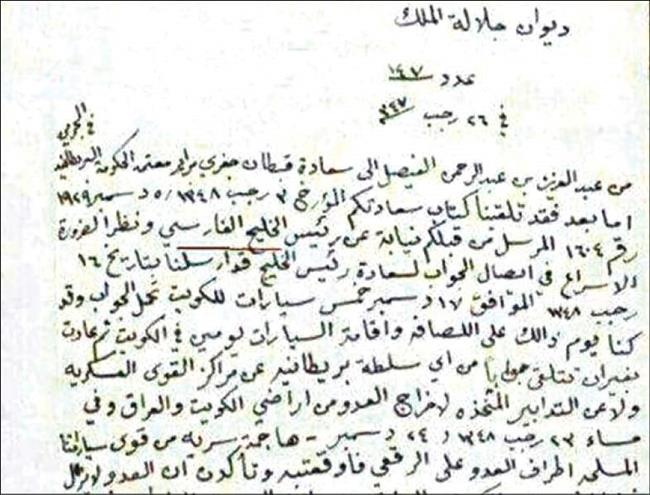 ديوان جلالة الملك
عدد ١٤٧
في ٢٦ رجب ٣٤٧
المحترم
من عبدالعزيز بن عبدالرحمن الفيصل الى سعادة قبطان جفري برايمر معتمد الحكومة البريطانية
اما بعد فقد تلقينا كتاب سعادتكم المؤرخ ٣ رجب ١٣٤٨ / ٥ دسمبر ١٩٢٩
رقم ١٦٠٤ المرسل من قبلكم نيابة عن رئيس الخليج الفارسي ونظرا لضرورة
الاسراع في ايصال الجواب لسعادة رئيس الخليج قد ارسلنا بتاريخ ١٦
رجب ١٣٤٨ الموافق ١٧ دسمبر خمس سيارات للكويت تحمل الجواب وقد
كنا يوم ذالك على اللصافه واقامة السيارات يومين في الكويت ثم عادت
بغير ان تتلقى جوابا من اي سلطة بريطانيه عن مراكز القوى العسكريه
ولا عن التدابير المتخذه لاخراج العدو من اراضي الكويت والعراق وفي
مساء ٢٣ رجب ١٣٤٨ / ٢٤ دسمبر - هاجمة سريه من قوى سياراتنا
المسلحه اطراف العدو على الرقعي فأوقعتبه وتأكدن ان العدو لايزال